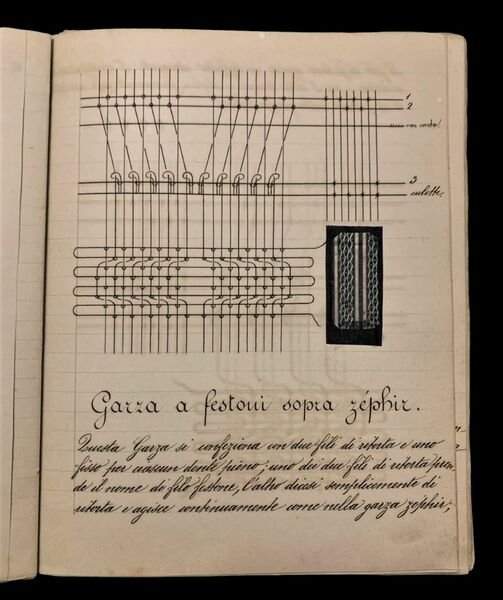 1
2
3
culotte
Garza a festoni sopra zéphir.
Questa Garza si confeziona con due fili di ritorta e uno
fisso per ciascun dente pieno; uno dei due fili di ritorta pren-
de il nome di filo festone, l'altro dicesi semplicemente di
ritorta e agisce continuamente come nella garza zéphir;